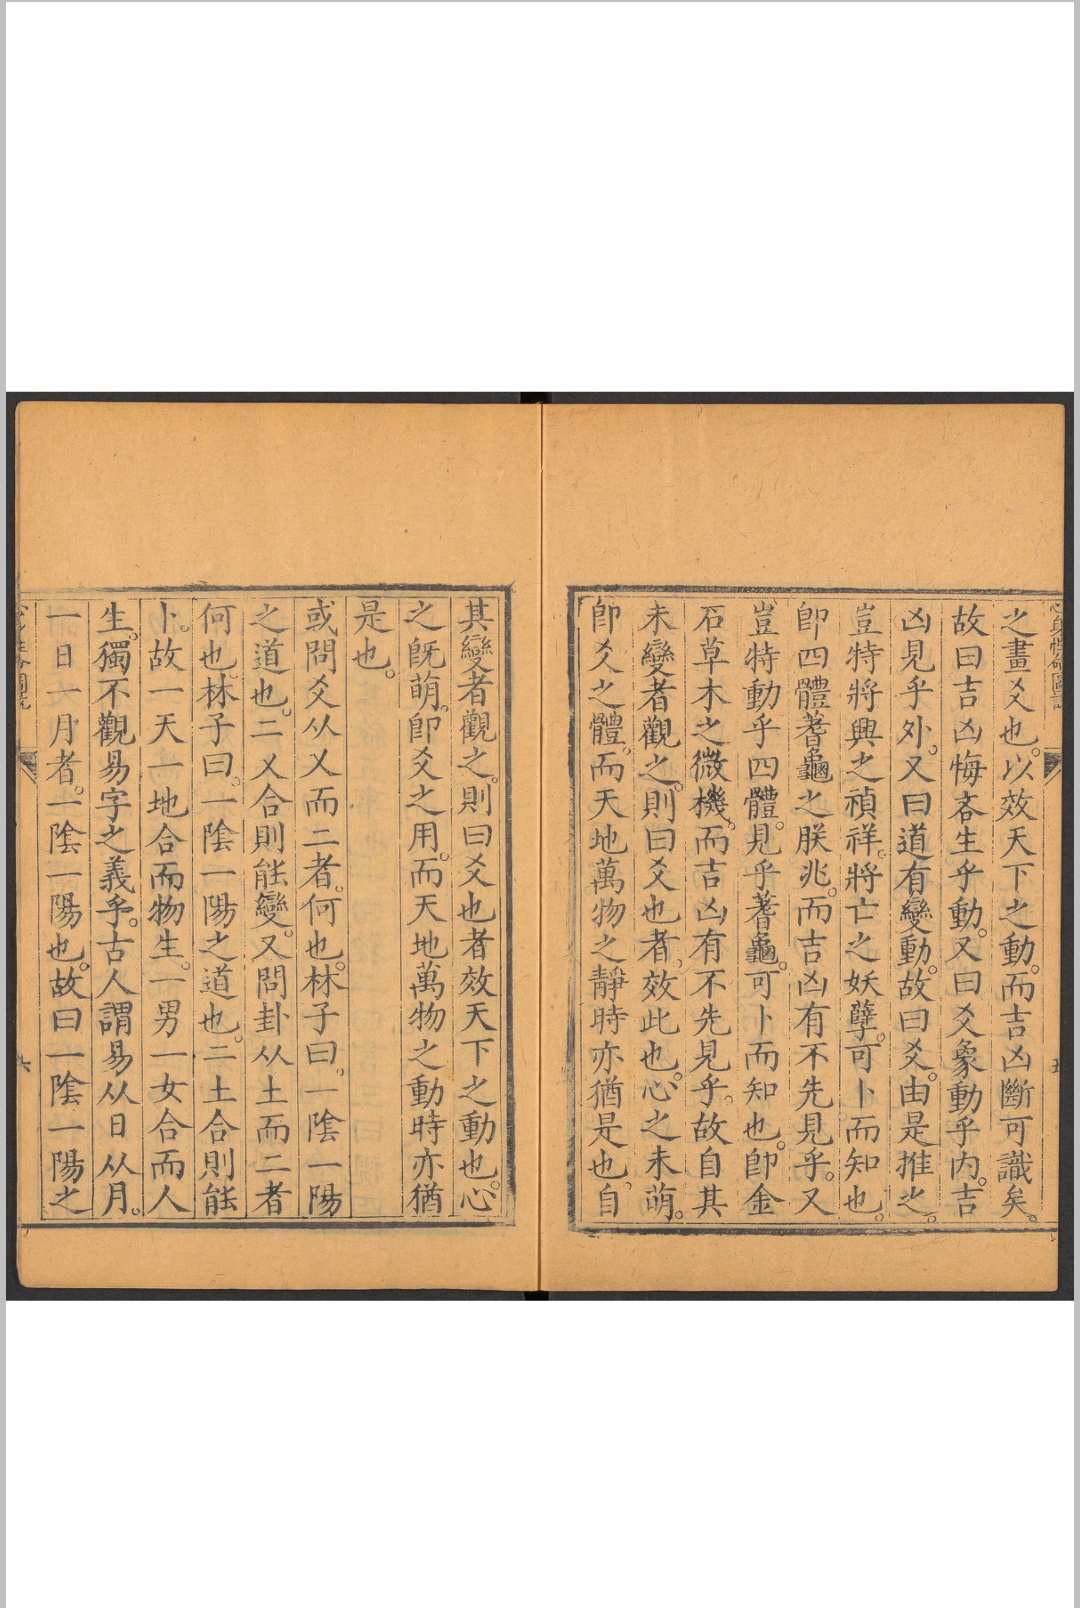 之畫爻也。以效天下之動。而吉凶斷可識矣。
故曰吉凶悔吝生乎動。又曰爻象動乎內。吉
凶見乎外。又曰道有變動。故曰爻。由是推之。
豈特將興之禎祥。將亡之妖孽。可卜而知也。
卽四體蓍龜之朕兆。而吉凶有不先見乎。又
豈特動乎四體。見乎蓍龜。可卜而知也。卽金
石草木之微機。而吉凶有不先見乎。故自其
未變者觀之。則曰爻也者、效此也。心之未萌。
卽爻之體。而天地萬物之靜時亦猶是也。自
其變者觀之。則曰爻也者效天下之動也。心
之既萌。卽爻之用。而天地萬物之動時亦猶
是也。
或問爻从乂而二者。何也。林子曰。一陰一陽
之道也。二乂合則能變。又問卦从土而二者
何也。林子曰。一陰一陽之道也。二土合則能
卜。故一天一地合而物生。一男一女合而人
生。獨不觀易字之義乎。古人謂易从日从月。
一日一月者。一陰一陽也。故曰一陰一陽之